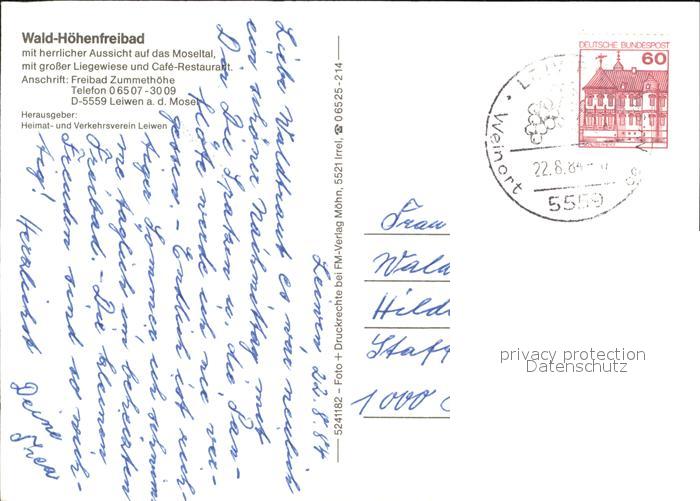 Wald-Höhenfreibad
mit herrlicher Aussicht auf das Moseltal,
mit großer Liegewiese und Café-Restaurant.
Anschrift: Freibad Zummethöhe
Telefon 0 65 07 - 30 09
D-5559 Leiwen a. d. Mosel
Herausgeber:
Heimat- und Verkehrsverein Leiwen
Leiwen 22.8.84
Liebe Waldtraut es war neulich
ein schöner Nachmittag mit
Dir. Die Spatzen u. die Pan-
flöte werde ich nie ver-
gessen. - Endlich ist rich-
tiger Sommer ich schwim-
me täglich im beheizten
Freibad. - Die kleinen
Freuden sind so wich-
tig! Herzlichst
Deine
5241182 – Foto + Druckrechte bei FM-Verlag Möhn, 5521 Irrel, ☎ 0 65 25 - 214
DEUTSCHE BUNDESPOST
60
Weinort
22.8.84
5559
Frau
Wald
Hild
1000
privacy protection
Datenschutz